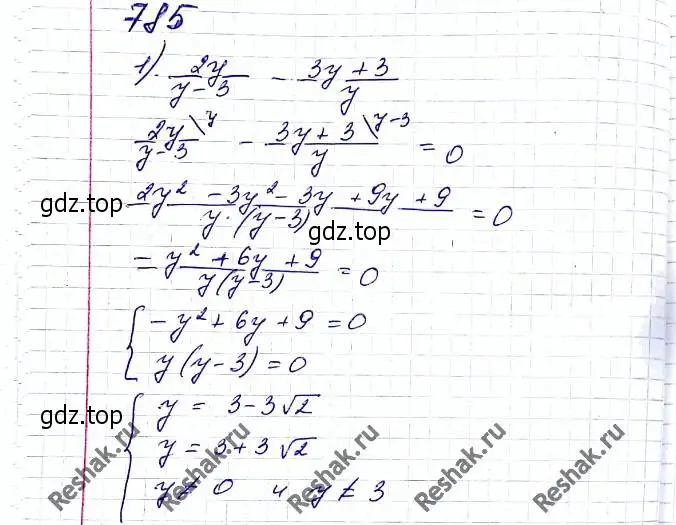 785
1) 2y/(y-3) - (3y+3)/y
2y\y/(y-3) - (3y+3\y-3)/y = 0
(2y² - 3y² - 3y + 9y + 9)/(y·(y-3)) = 0
gdz.top
gdz.top
= (y² + 6y + 9)/(y(y-3)) = 0
{ -y² + 6y + 9 = 0
y(y-3) = 0
{ y = 3 - 3√2
gdz.top
y = 3 + 3√2
y ≠ 0 и y ≠ 3
Reshak.ru
Reshak.ru
Reshak.ru
Reshak.ru
Reshak.ru